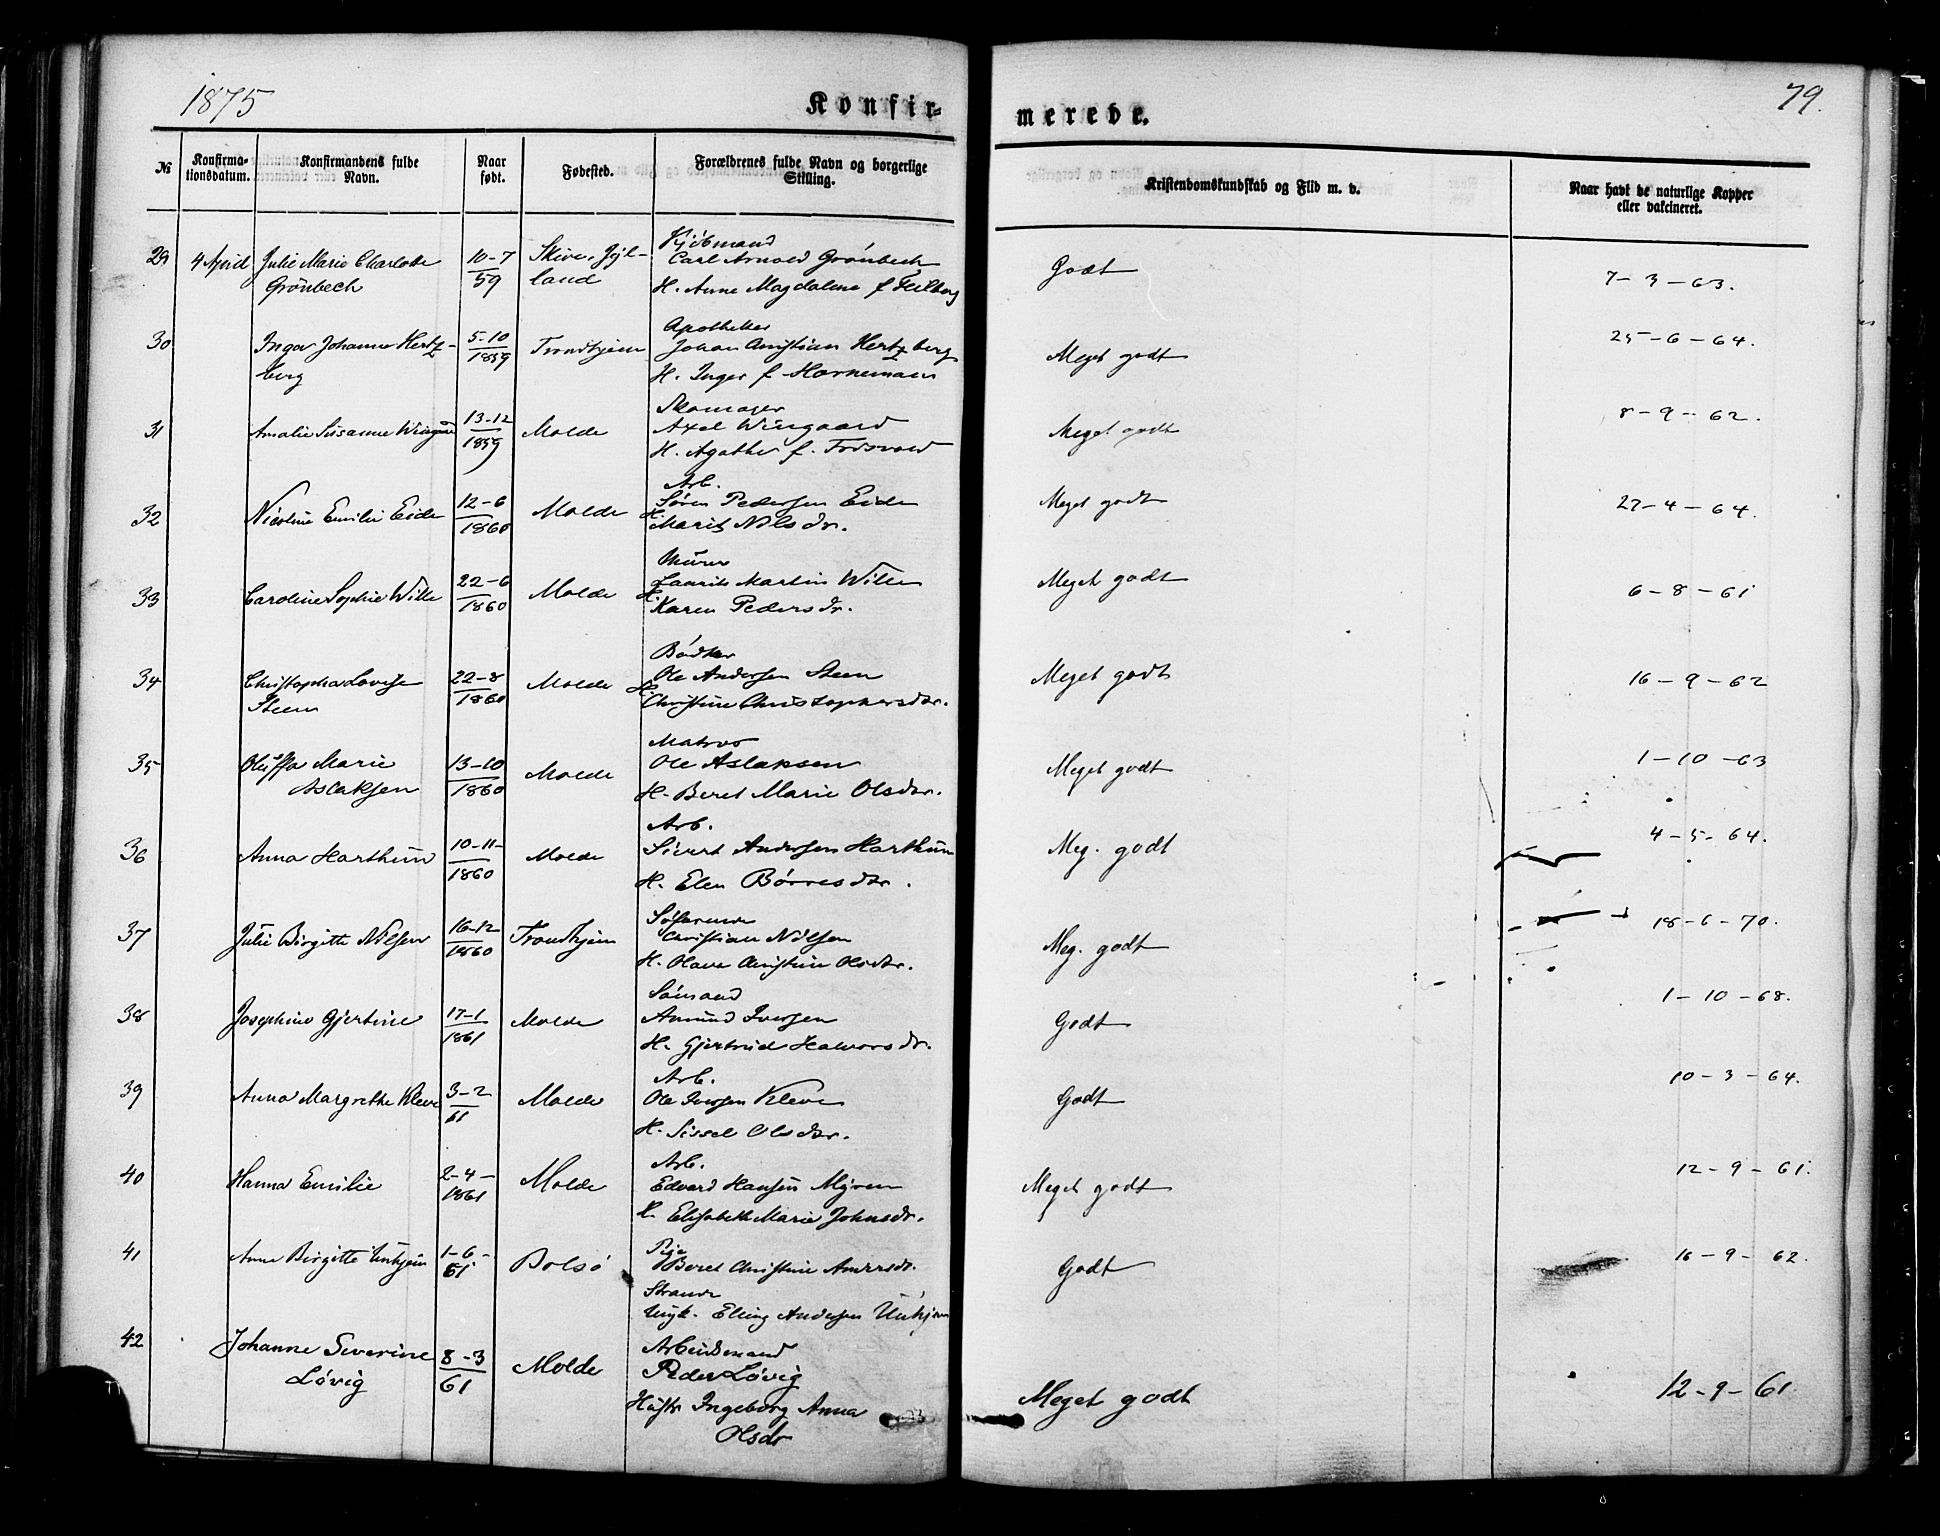 1875
79.
Konfir-
merede.
№
Konfirma-
tionsdatum.
Konfirmandens fulde
Navn.
Naar
født.
Fødested.
Forældrenes fulde Navn og borgerlige
Stilling.
Kristendomskundskab og Flid m. v.
Naar havt de naturlige Kopper
eller vakcineret.
29 4 April Julie Marie Charlotte
Grönbech
10-7
59
Skive, Jyl-
land
Kjöbmand
Carl Arnold Grönbech
H. Anne Magdalene f.
Godt
7-3-63.
30
Inger Johanne Hertz-
berg
5-10
1859
Trondhjem
Apotheker
Johan Christian Hertzberg
H. Inger f. Hornemann
Meget godt
25-6-64.
31
Amalie Susanne
13-12
1859
Molde
Skomager
Axel Wingaard
H. Agathe f.
Meget godt
8-9-62.
32
Nicoline Emilie Eide
12-6
1860
Molde
Arb.
Sören Pedersen Eide
H. Marit Nilsdr.
Meget godt
27-4-64.
33
Caroline Sophie Wille
22-6
1860
Molde
Murer
Laurits Martin Wille
H. Karen Pedersdr.
Meget godt
6-8-61
34
Christopha Lovise
Steen
22-8
1860
Molde
Bödker
Ole Andersen Steen
H. Christine Christophersdr.
Meget godt
16-9-62
35
Oluffa Marie
Aslaksen
13-10
1860
Molde
Matros
Ole Aslaksen
H. Beret Marie Olsdr.
Meget godt
1-10-63
36
Anna Harthun
10-11-
1860
Molde
Arb.
Sivert Andersen Harthun
H. Elen Börresdr.
Meg. godt
4-5-64.
37
Julie Birgitte Nilsen
16-12
1860
Trondhjem
Söfarende
Christian Nilsen
H. Olava Christine Olsdr.
Meg. godt
18-6-70.
38
Josephine Gjertine
17-1
1861
Molde
Sömand
Amund Iversen
H. Gjertrud Halvorsdr.
Godt
1-10-68.
39
Anna Margrethe Kleve
3-2
61
Molde
Arb.
Ole Iversen Kleve
H. Sissel Olsdr.
Godt
10-3-64.
40
Hanna Emilie
2-4-
1861
Molde
Arb.
Edvard Hansen Myren
H. Elisabeth Marie Johnsdr.
Meget godt
12-9-61.
41
Anne Birgitte
1-6-
61
Bolsö
Pige
Beret Christine
Strande
Ungk. Elling Andersen
Godt
16-9-62.
42
Johanne Severine
Lövig
8-3
61
Molde
Arbeidsmand
Peder Lövig
Hustr Ingeborg Anna
Olsdr
Meget godt
12-9-61